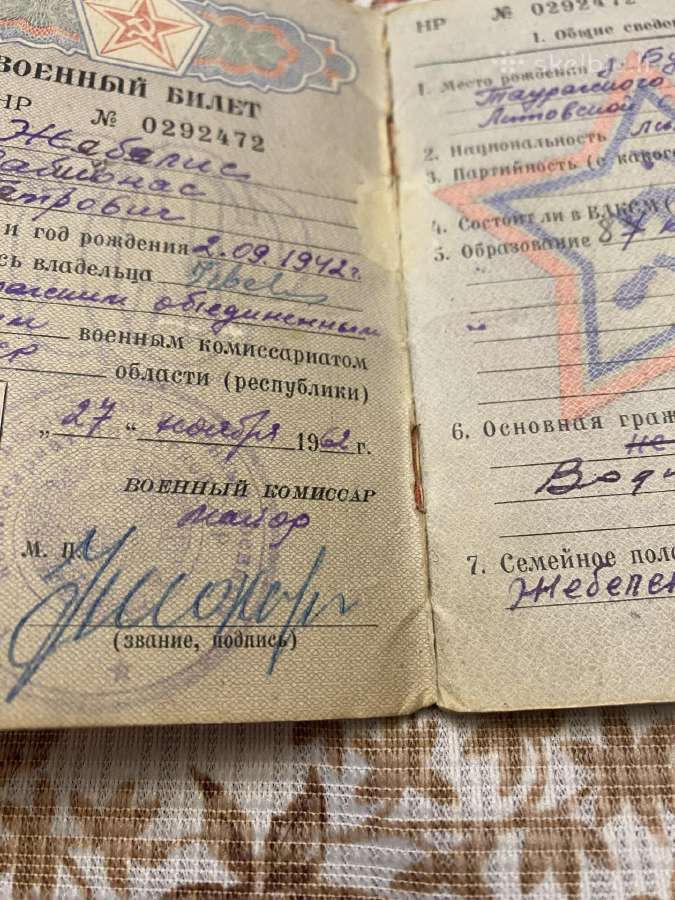 ВОЕННЫЙ БИЛЕТ
НР № 0292472
Жебелис
Петрович
и год рождения 2.09.1942г.
сь владельца
объединенным
военным комиссариатом
СР области (республики)
„27“ ноября 1962 г.
ВОЕННЫЙ КОМИССАР
майор
М. П.
(звание, подпись)
НР № 0292472
1. Общие сведе
skelbiu.lt
1. Место рождения
Таурагского
Литовской С
2. Национальность Ли
3. Партийность (с какого
4. Состоит ли в ВЛКСМ (
5. Образование 8
6. Основная граж
не
Води
7. Семейное поло